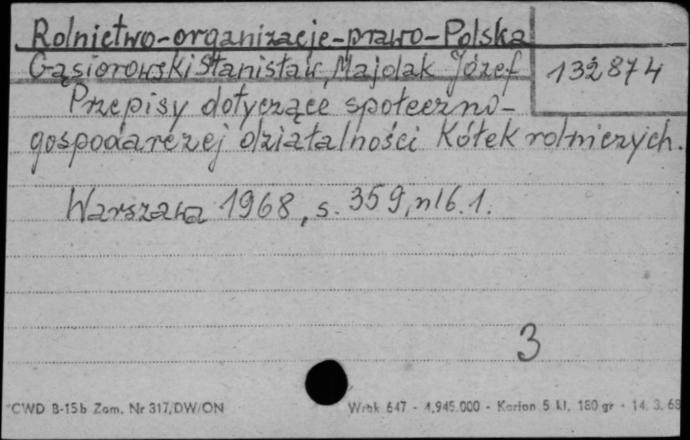 Rolnictwo-organizacje-prawo-Polska
Gąsiorowski Stanisław, Majolak Józef
132874
Przepisy dotyczące społeczno-
gospodarczej działalności Kółek rolniczych.
Warszawa 1968, s. 359, nlb. 1.
3
CWD B-15b Zam. Nr 317/DW/ON
Wrak 647 - 4.945.000 - Karton 5 kl. 180 gr - 14. 3. 68